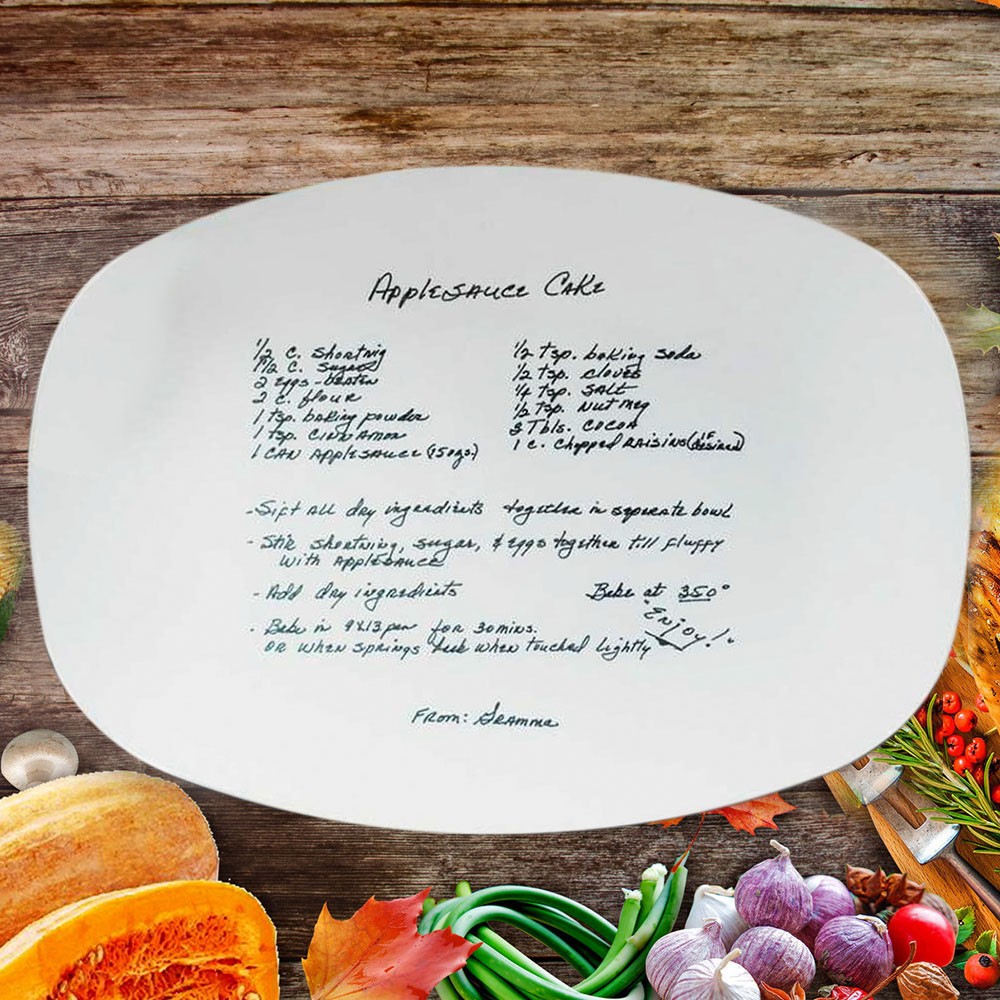 Applesauce Cake
1/2 c. shortnig
1 1/2 c. sugar
2 eggs - beaten
2 c. flour
1 tsp. baking powder
1 tsp. cinnamon
1 can applesauce (15 ozs.)
1/2 tsp. baking soda
1/2 tsp. cloves
1/4 tsp. salt
1/2 tsp. nutmeg
3 Tbls. cocoa
1 c. chopped raisins (if desired)
- Sift all dry ingredients together in separate bowl
- Stir shortning, sugar, & eggs together till fluffy
with applesauce
- Add dry ingredients
Bake at 350°
Enjoy!
- Bake in 9x13 pan for 30 mins.
or when springs back when touched lightly
From: Gramma